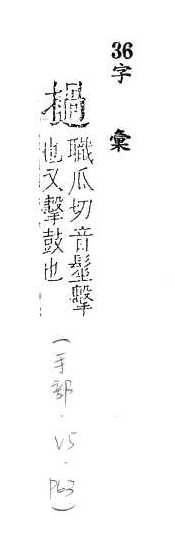 36字彙
撾
職瓜切音髽擊
也又擊鼓也
(手部.V5.P63)